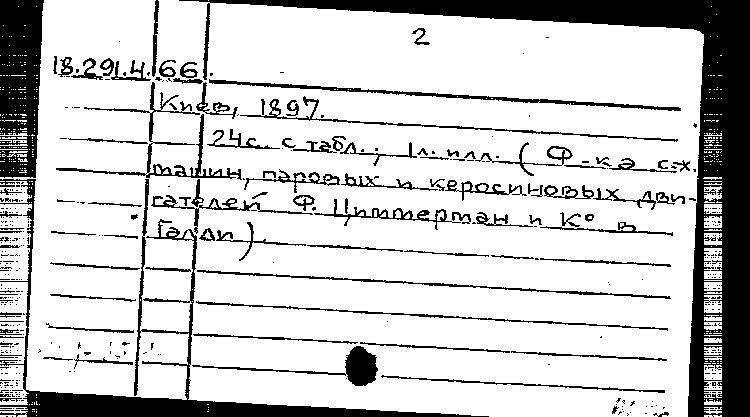 2
18.291.4.66.
Киев, 1897.
24с. с табл.; 1л. илл. (Ф-ка с.-х.
машин, паровых и керосиновых дви-
гателей Ф. Циммерман и К° в
Галли).